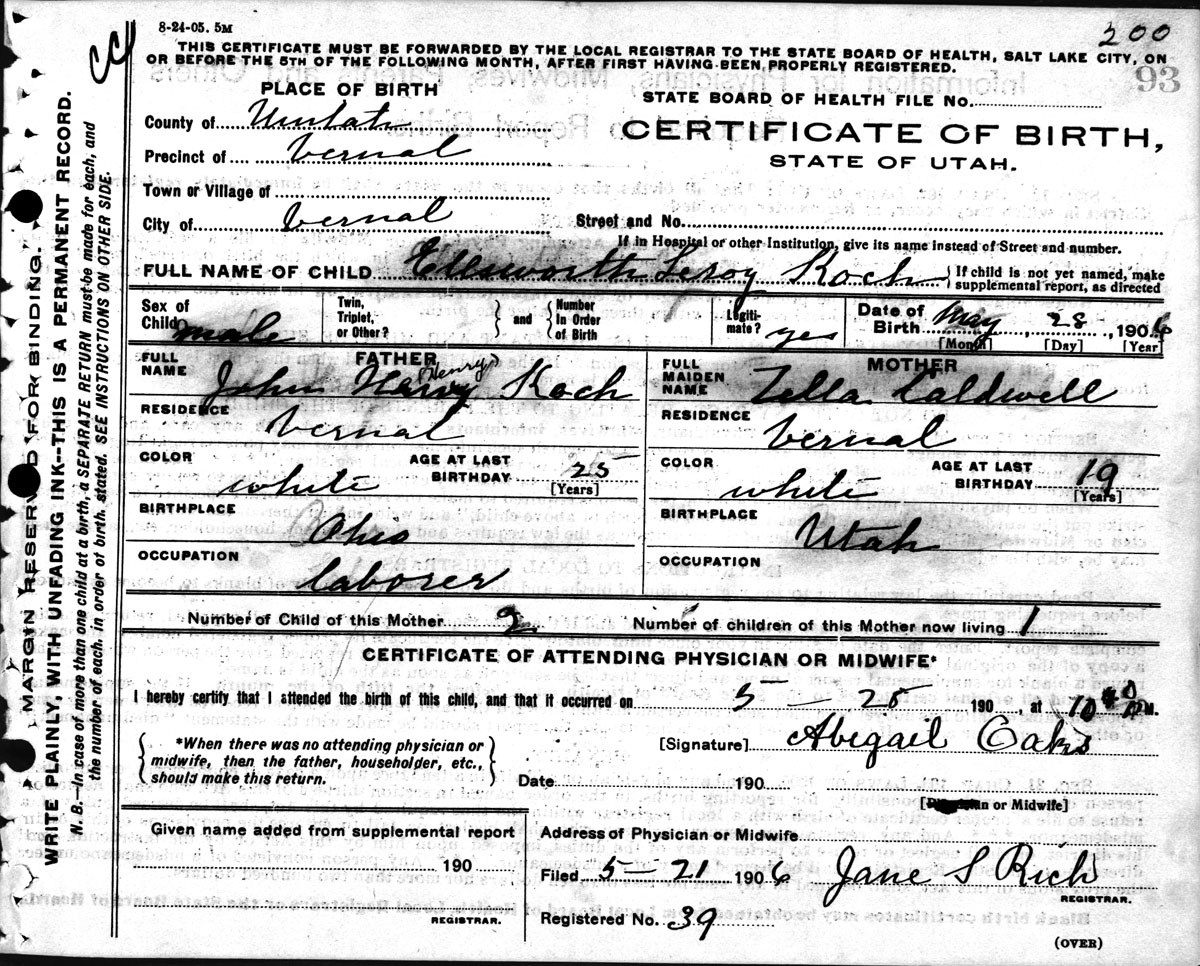 8-24-05. 5M
200
THIS CERTIFICATE MUST BE FORWARDED BY THE LOCAL REGISTRAR TO THE STATE BOARD OF HEALTH, SALT LAKE CITY, ON
OR BEFORE THE 5TH OF THE FOLLOWING MONTH, AFTER FIRST HAVING BEEN PROPERLY REGISTERED.
93
PLACE OF BIRTH
STATE BOARD OF HEALTH FILE No.
County of Uintah
CERTIFICATE OF BIRTH,
Precinct of Vernal
STATE OF UTAH.
Town or Village of
City of Vernal Street and No.
If in Hospital or other Institution, give its name instead of Street and number.
FULL NAME OF CHILD Ellsworth Leroy Koch { If child is not yet named, make
supplemental report, as directed
Sex of Child male Twin, Triplet, or Other? } and { Number In Order of Birth Legiti-mate? yes Date of Birth May 28, 1906
[Month] [Day] [Year]
FATHER MOTHER
FULL NAME John Henry (Henry) Koch FULL MAIDEN NAME Zella Caldwell
RESIDENCE Vernal RESIDENCE Vernal
COLOR white AGE AT LAST BIRTHDAY 25 [Years] COLOR white AGE AT LAST BIRTHDAY 19 [Years]
BIRTHPLACE Ohio BIRTHPLACE Utah
OCCUPATION laborer OCCUPATION
Number of Child of this Mother 2 Number of children of this Mother now living 1
CERTIFICATE OF ATTENDING PHYSICIAN OR MIDWIFE*
I hereby certify that I attended the birth of this child, and that it occurred on 5 — 28 190 , at 10 40 M.
*When there was no attending physician or
midwife, then the father, householder, etc.,
should make this return.
[Signature] Abigail Oaks
Date 190
or Midwife]
Given name added from supplemental report
190
REGISTRAR.
Address of Physician or Midwife
Filed 5-21 1906 Jane S Rich
REGISTRAR.
Registered No. 39
(OVER)
MARGIN RESERVED FOR BINDING.
WRITE PLAINLY, WITH UNFADING INK--THIS IS A PERMANENT RECORD.
N. B.—In case of more than one child at a birth, a SEPARATE RETURN must be made for each, and
the number of each, in order of birth, stated. SEE INSTRUCTIONS ON OTHER SIDE.